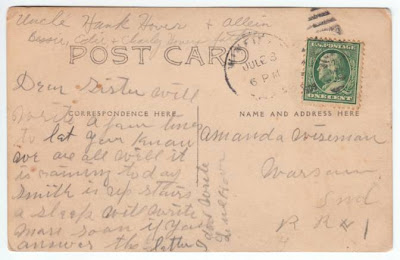 Uncle Hank Hover & Allein
Bessie, Edie & Charly
POST CARD
JUL 5
6 PM
U.S. POSTAGE
ONE CENT
CORRESPONDENCE HERE
NAME AND ADDRESS HERE
Dear Sister will
write a few lines
to let you know
we are all well it
is raining to day
Smith is up stairs
a sleep will write
more soon if you
answer this letter
Amanda Wiseman
Warsaw
Ind
RR #1